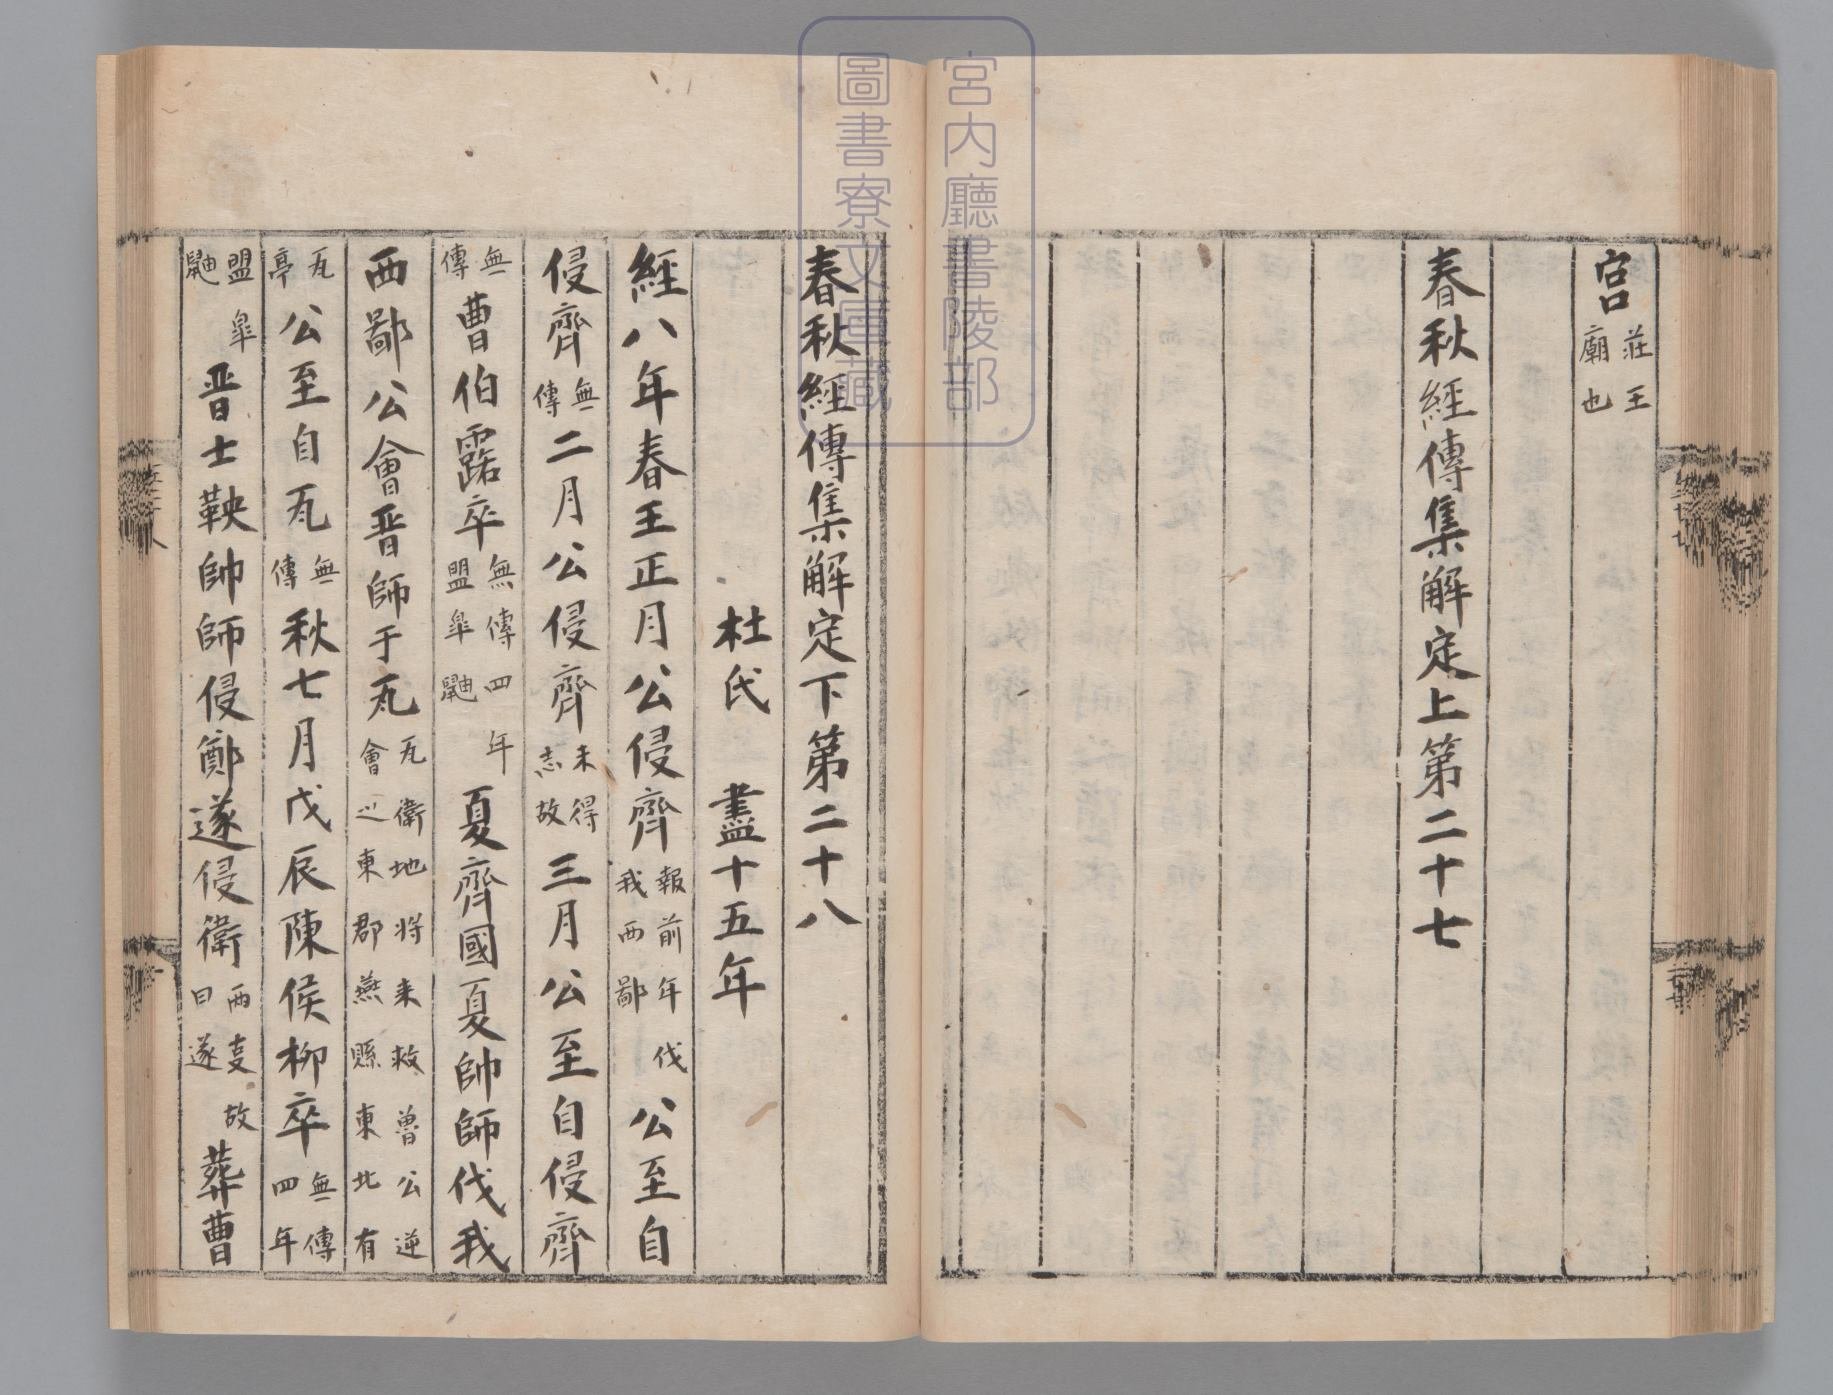 宮莊王廟也
春秋經傳集解定上第二十七
春秋經傳集解定下第二十八
杜氏 盡十五年
經八年春王正月公侵齊報前年伐我西鄙公至自
侵齊無傳二月公侵齊未得志故三月公至自侵齊
無傳曹伯露卒無傳四年盟皐鼬夏齊國夏帥師伐我
西鄙公會晉師于瓦瓦衛地将来救魯公逆會之東郡燕縣東北有
瓦亭公至自瓦無傳秋七月戊辰陳侯柳卒無傳四年
盟皐鼬晉士鞅帥師侵鄭遂侵衛兩事故曰遂葬曹
宮内廳書陵部
圖書寮文庫藏